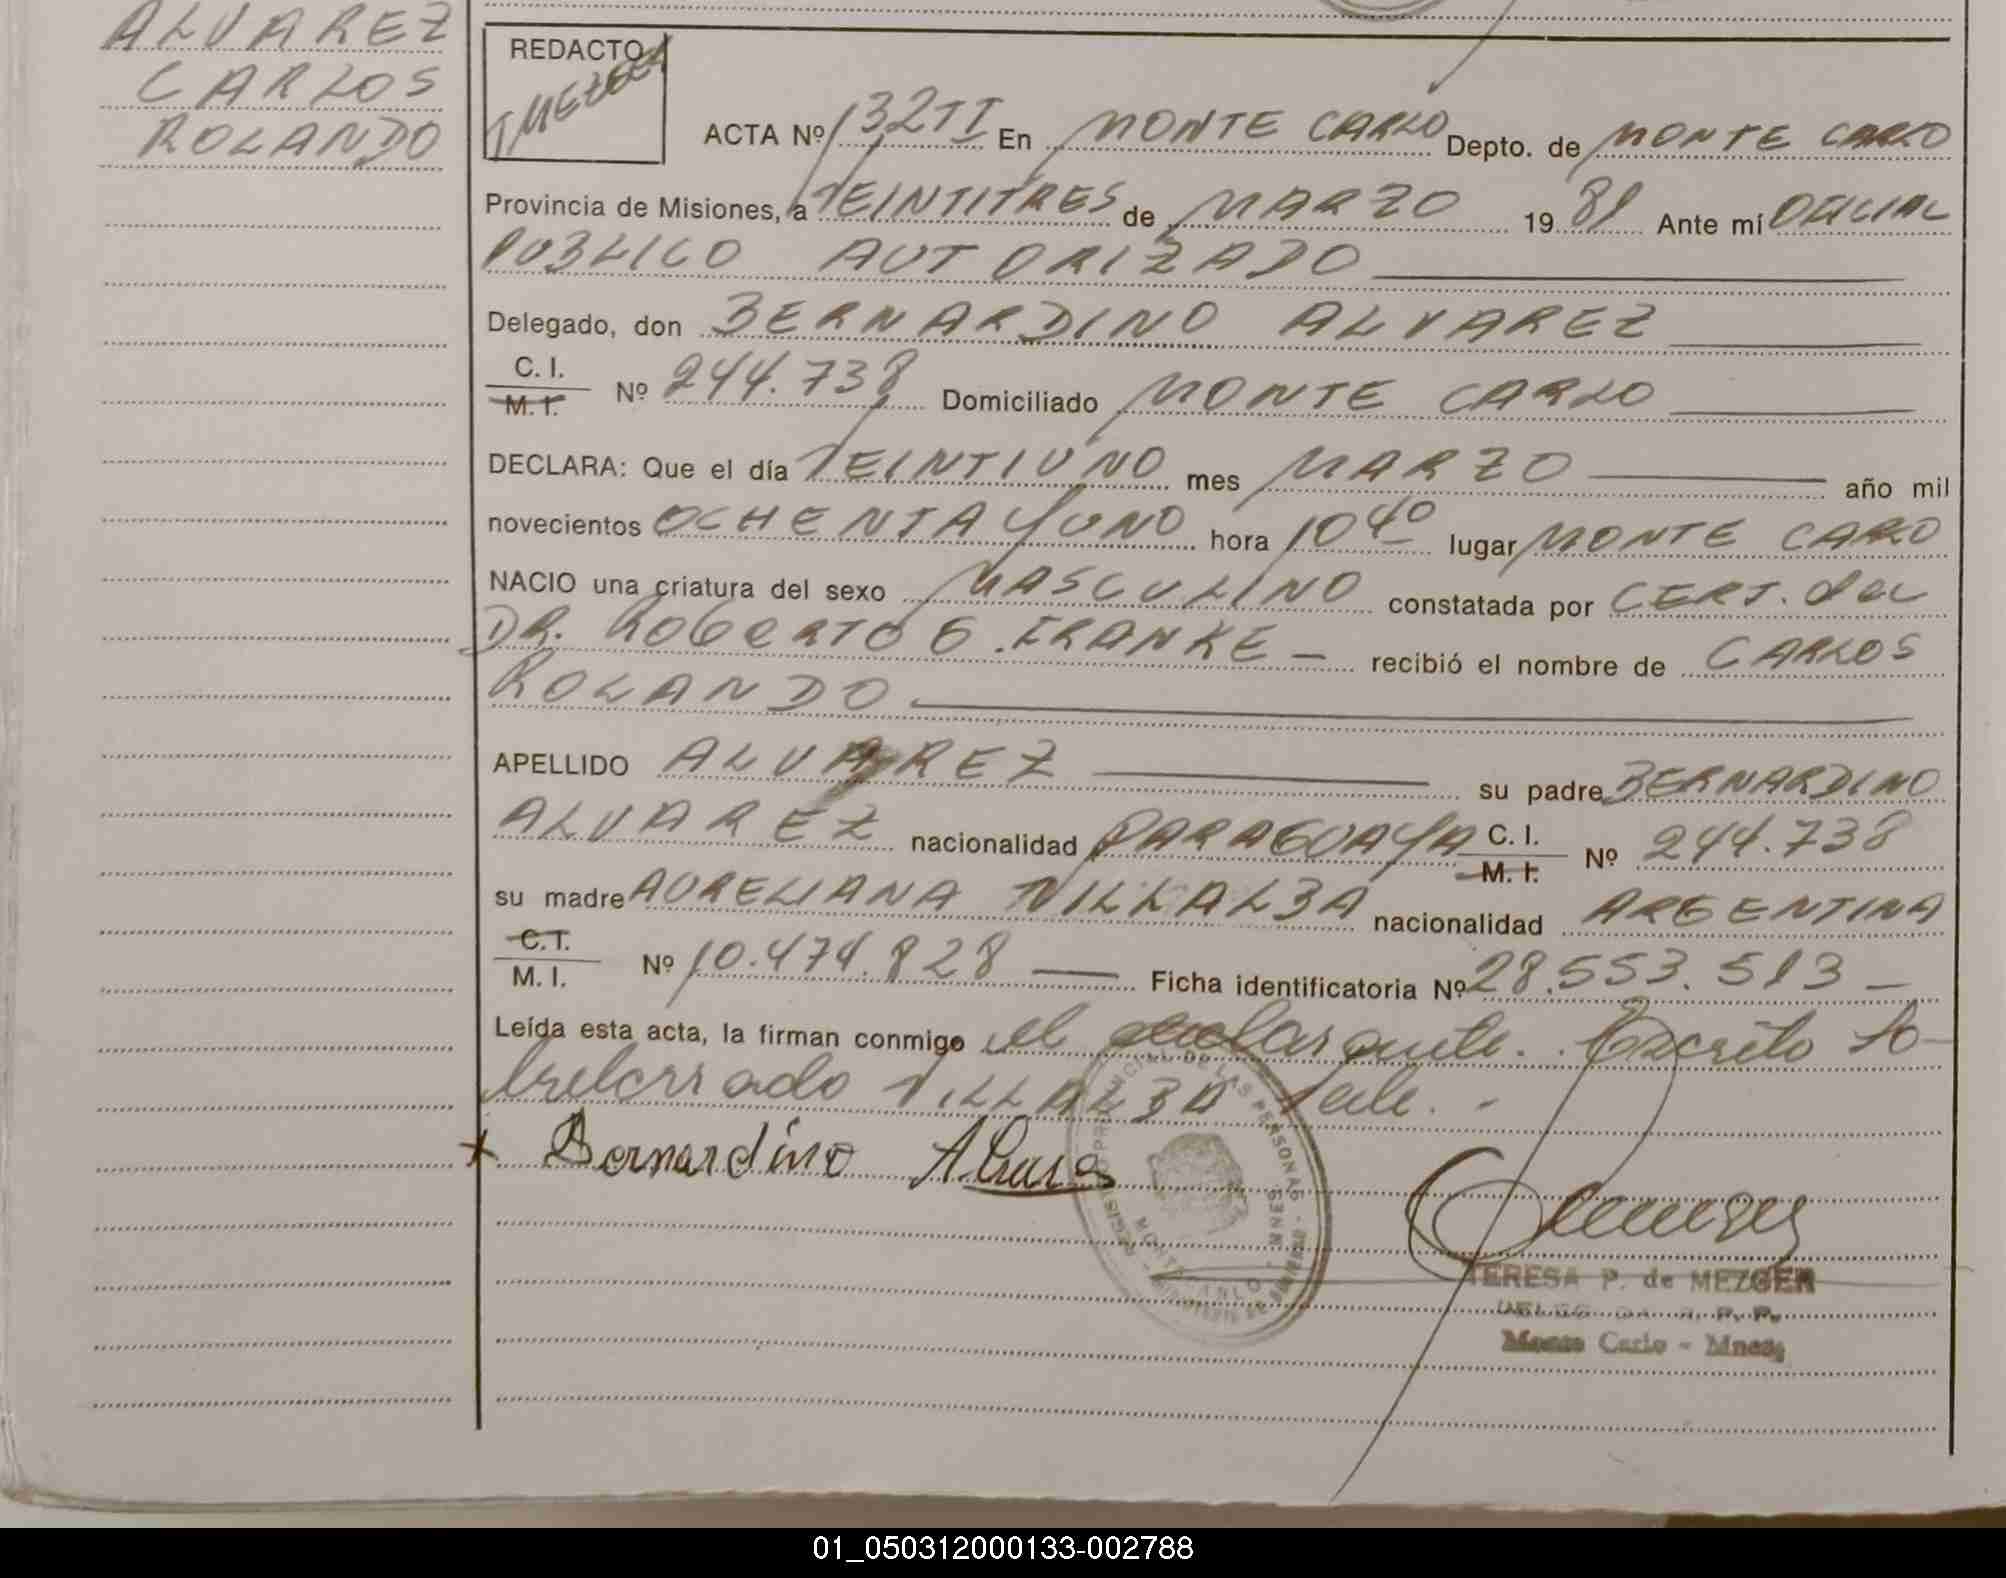 ALVAREZ
CARLOS
ROLANDO
REDACTO
T MEZGER
ACTA Nº 132 TI En MONTE CARLO Depto. de MONTE CARLO
Provincia de Misiones, a VEINTITRES de MARZO 1981 Ante mí OFICIAL
PUBLICO AUTORIZADO
Delegado, don BERNARDINO ALVAREZ
C. I.
M. I. Nº 244.738 Domiciliado MONTE CARLO
DECLARA: Que el día VEINTIUNO mes MARZO año mil
novecientos OCHENTA Y UNO hora 10 40 lugar MONTE CARO
NACIO una criatura del sexo MASCULINO constatada por CERT. del
DR. ROBERTO G. FRANKE - recibió el nombre de CARLOS
ROLANDO
APELLIDO ALVAREZ su padre BERNARDINO
ALVAREZ nacionalidad PARAGUAYA C. I.
M. I. Nº 244.738
su madre AURELIANA VILLALBA nacionalidad ARGENTINA
C. I.
M. I. Nº 10.474.828 Ficha identificatoria Nº 28.553.513 -
Leída esta acta, la firman conmigo el declarante. Escrito so-
breborrado VILLALBA vale. -
x Bernardino Alvares
PROVINCIAL DE LAS PERSONAS
MONTE CARLO - MNES.
TERESA P. de MEZGER
R. P. P.
Monte Carlo - Mnes.
01_050312000133-002788